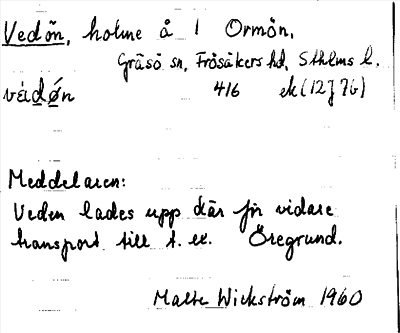 Vedön, holme å l Ormön,
Gräsö sn, Frösåkers hd, Sthlms l.
416 ek (12J7b)
vèdǿn
Meddelaren:
Veden lades upp där för vidare
transport till t. ex. Öregrund.
Malte Wickström 1960